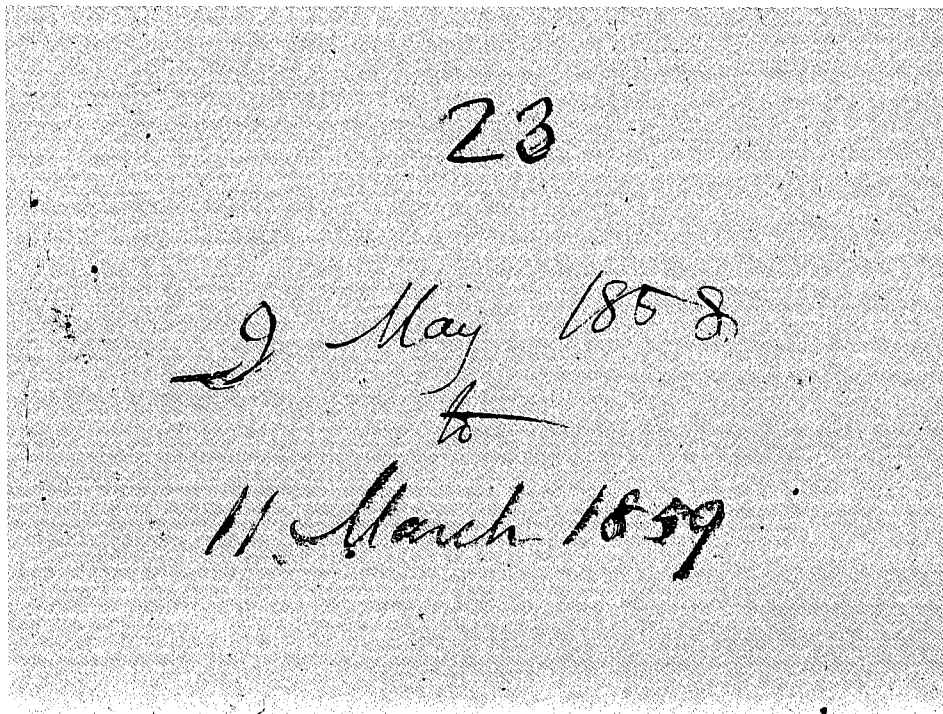 23
9 May 1858
to
11 March 1859